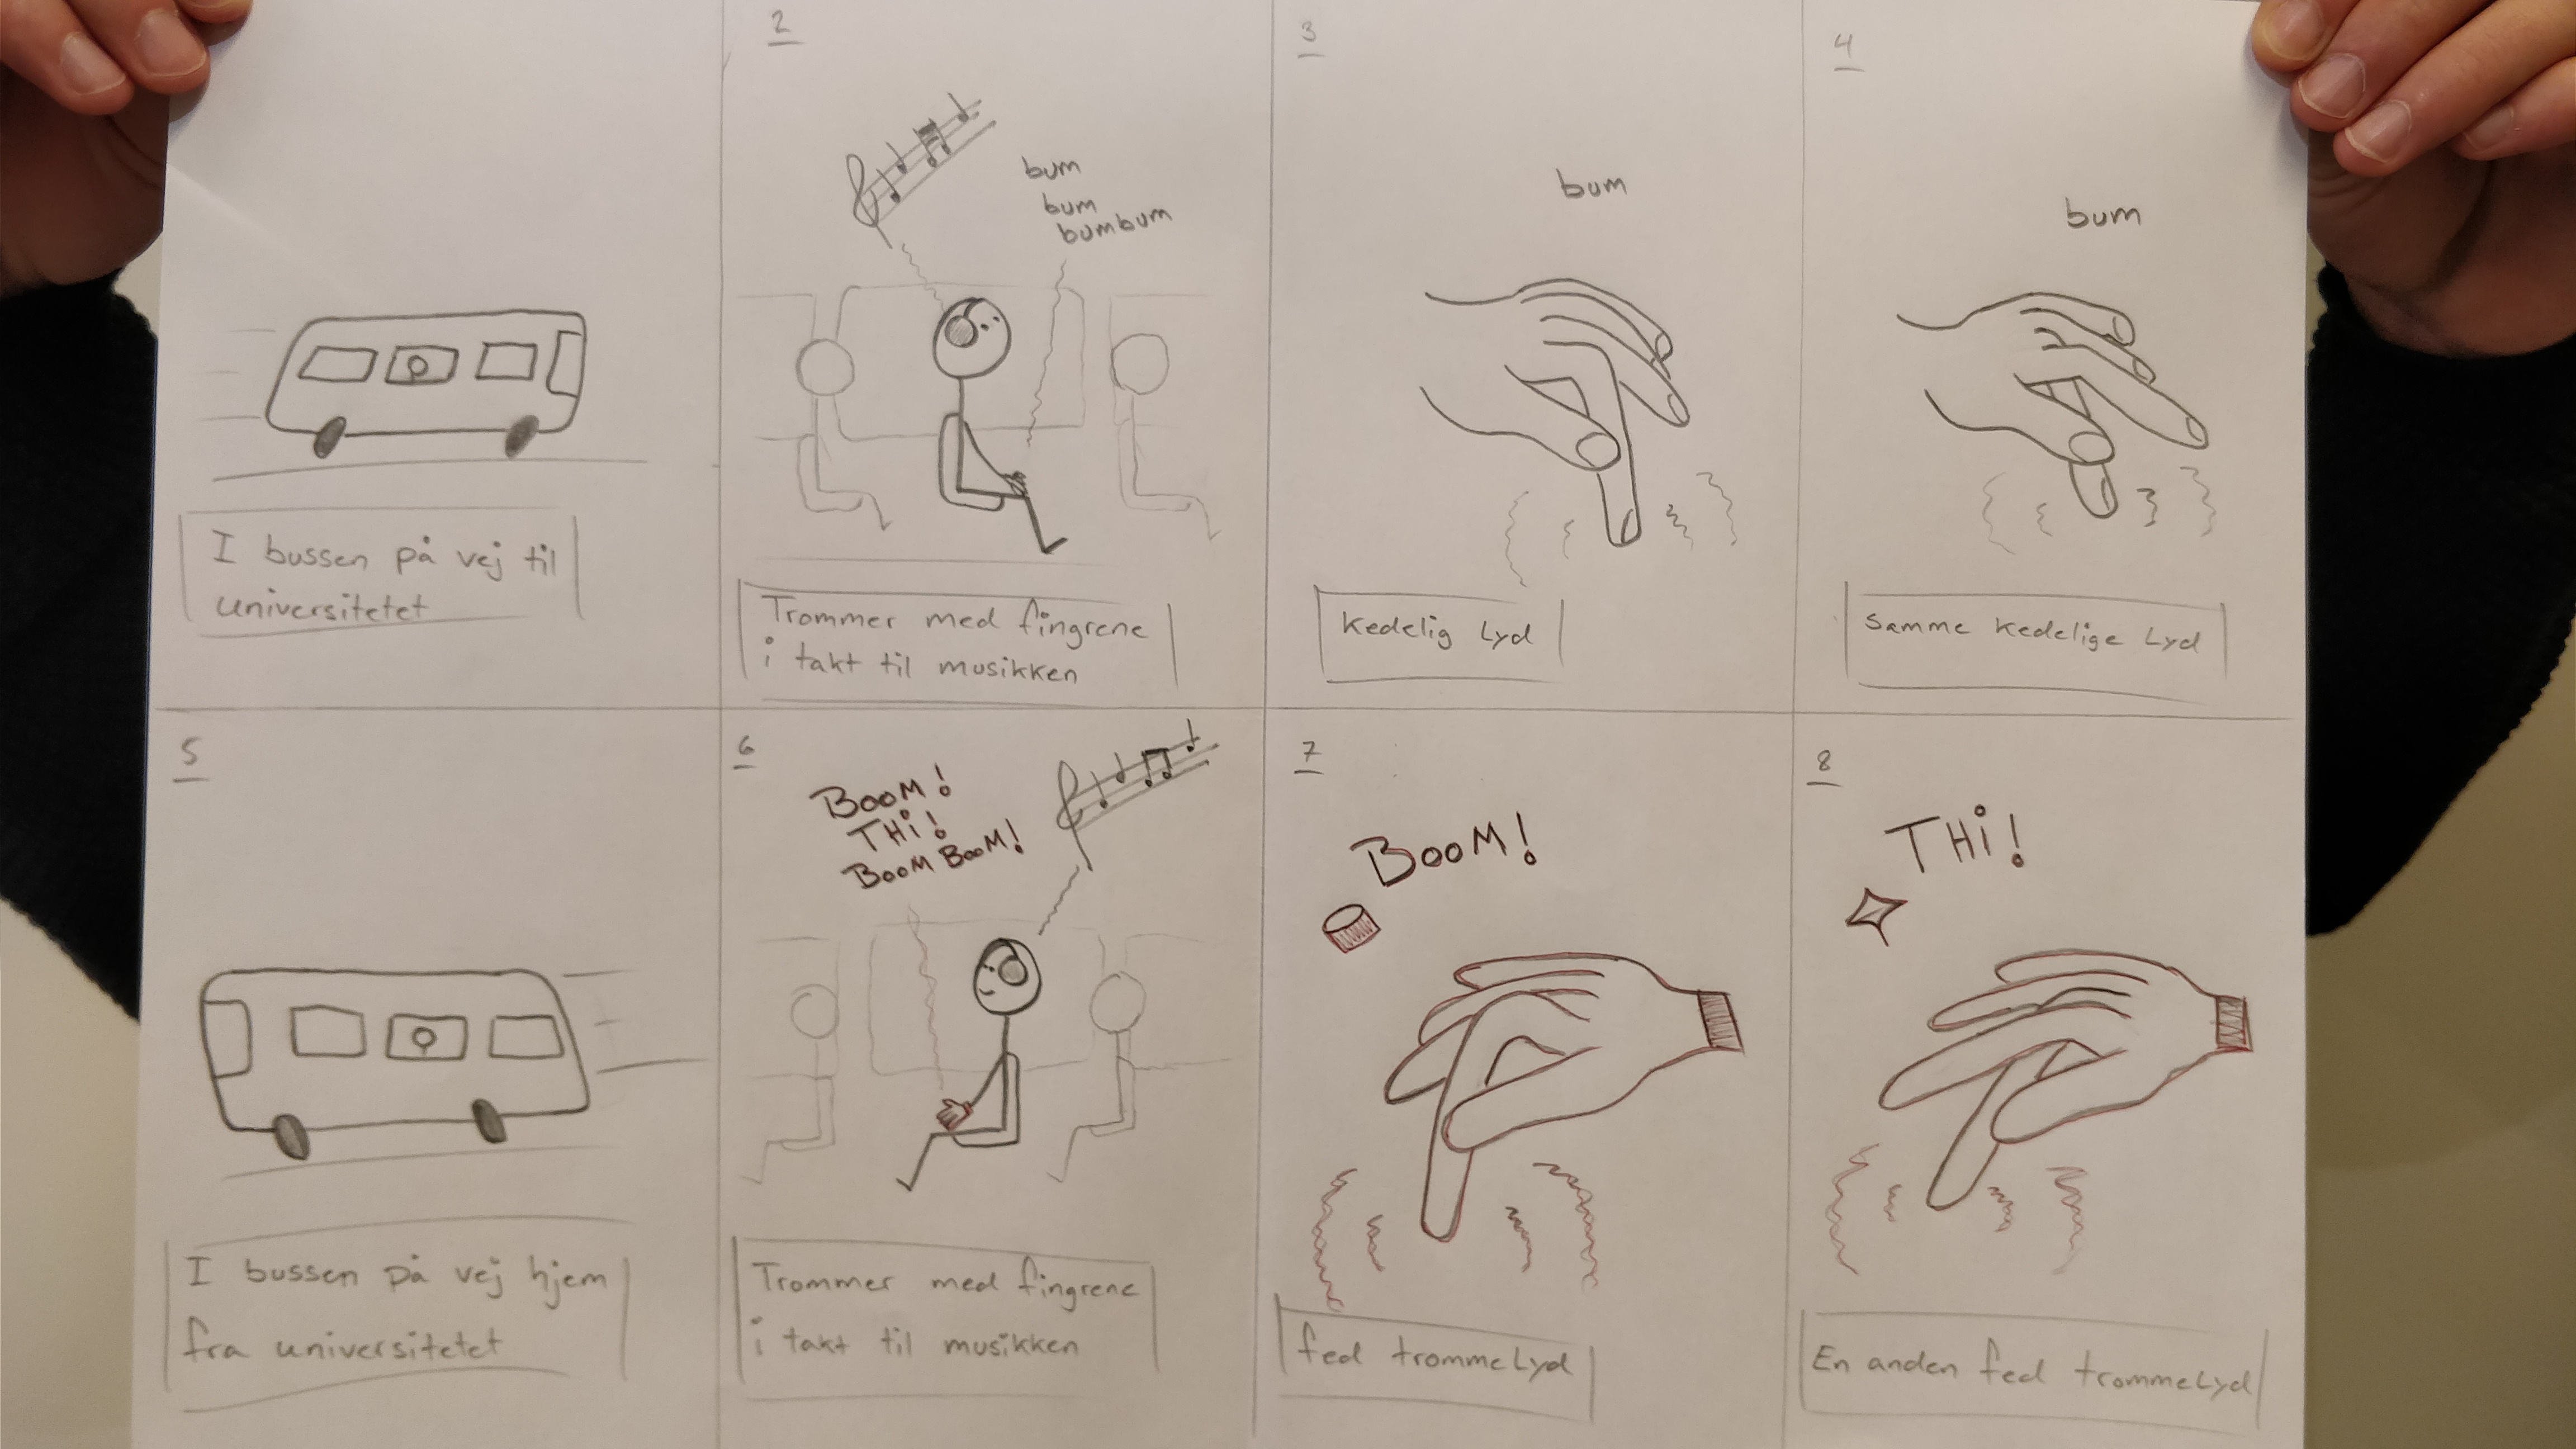 I bussen på vej til
universitetet
2
bum
bum
bumbum
Trommer med fingrene
i takt til musikken
3
bum
kedelig Lyd
4
bum
samme kedelige Lyd
5
I bussen på vej hjem
fra universitetet
6
BOOM!
THi!
BOOM BOOM!
Trommer med fingrene
i takt til musikken
7
BOOM!
fed trommeLyd
8
THi!
En anden fed trommeLyd